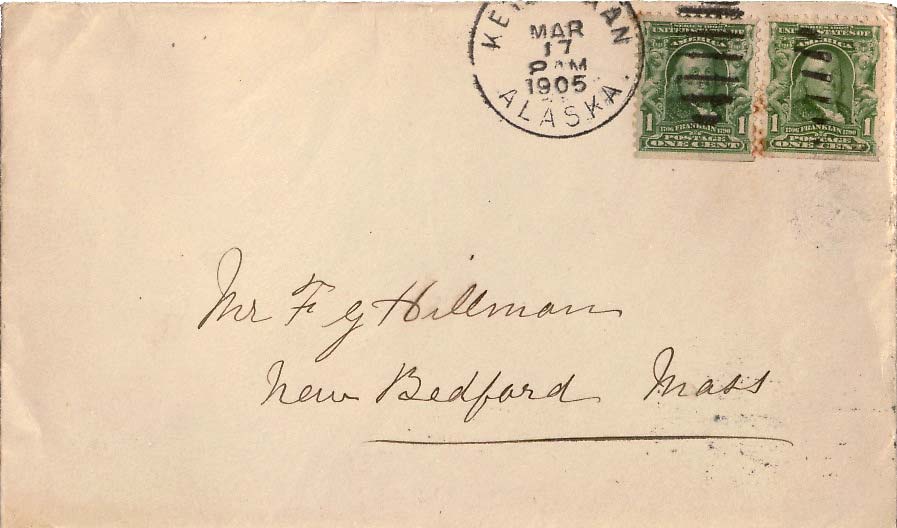 MAR
17
1905
ALASKA.
SERIES 1902
UNITED STATES OF
AMERICA
1 1706 FRANKLIN 1790 1
POSTAGE
ONE CENT
SERIES 1902
UNITED STATES OF
AMERICA
1 1706 FRANKLIN 1790 1
POSTAGE
ONE CENT
Mr F G Hillman
New Bedford Mass